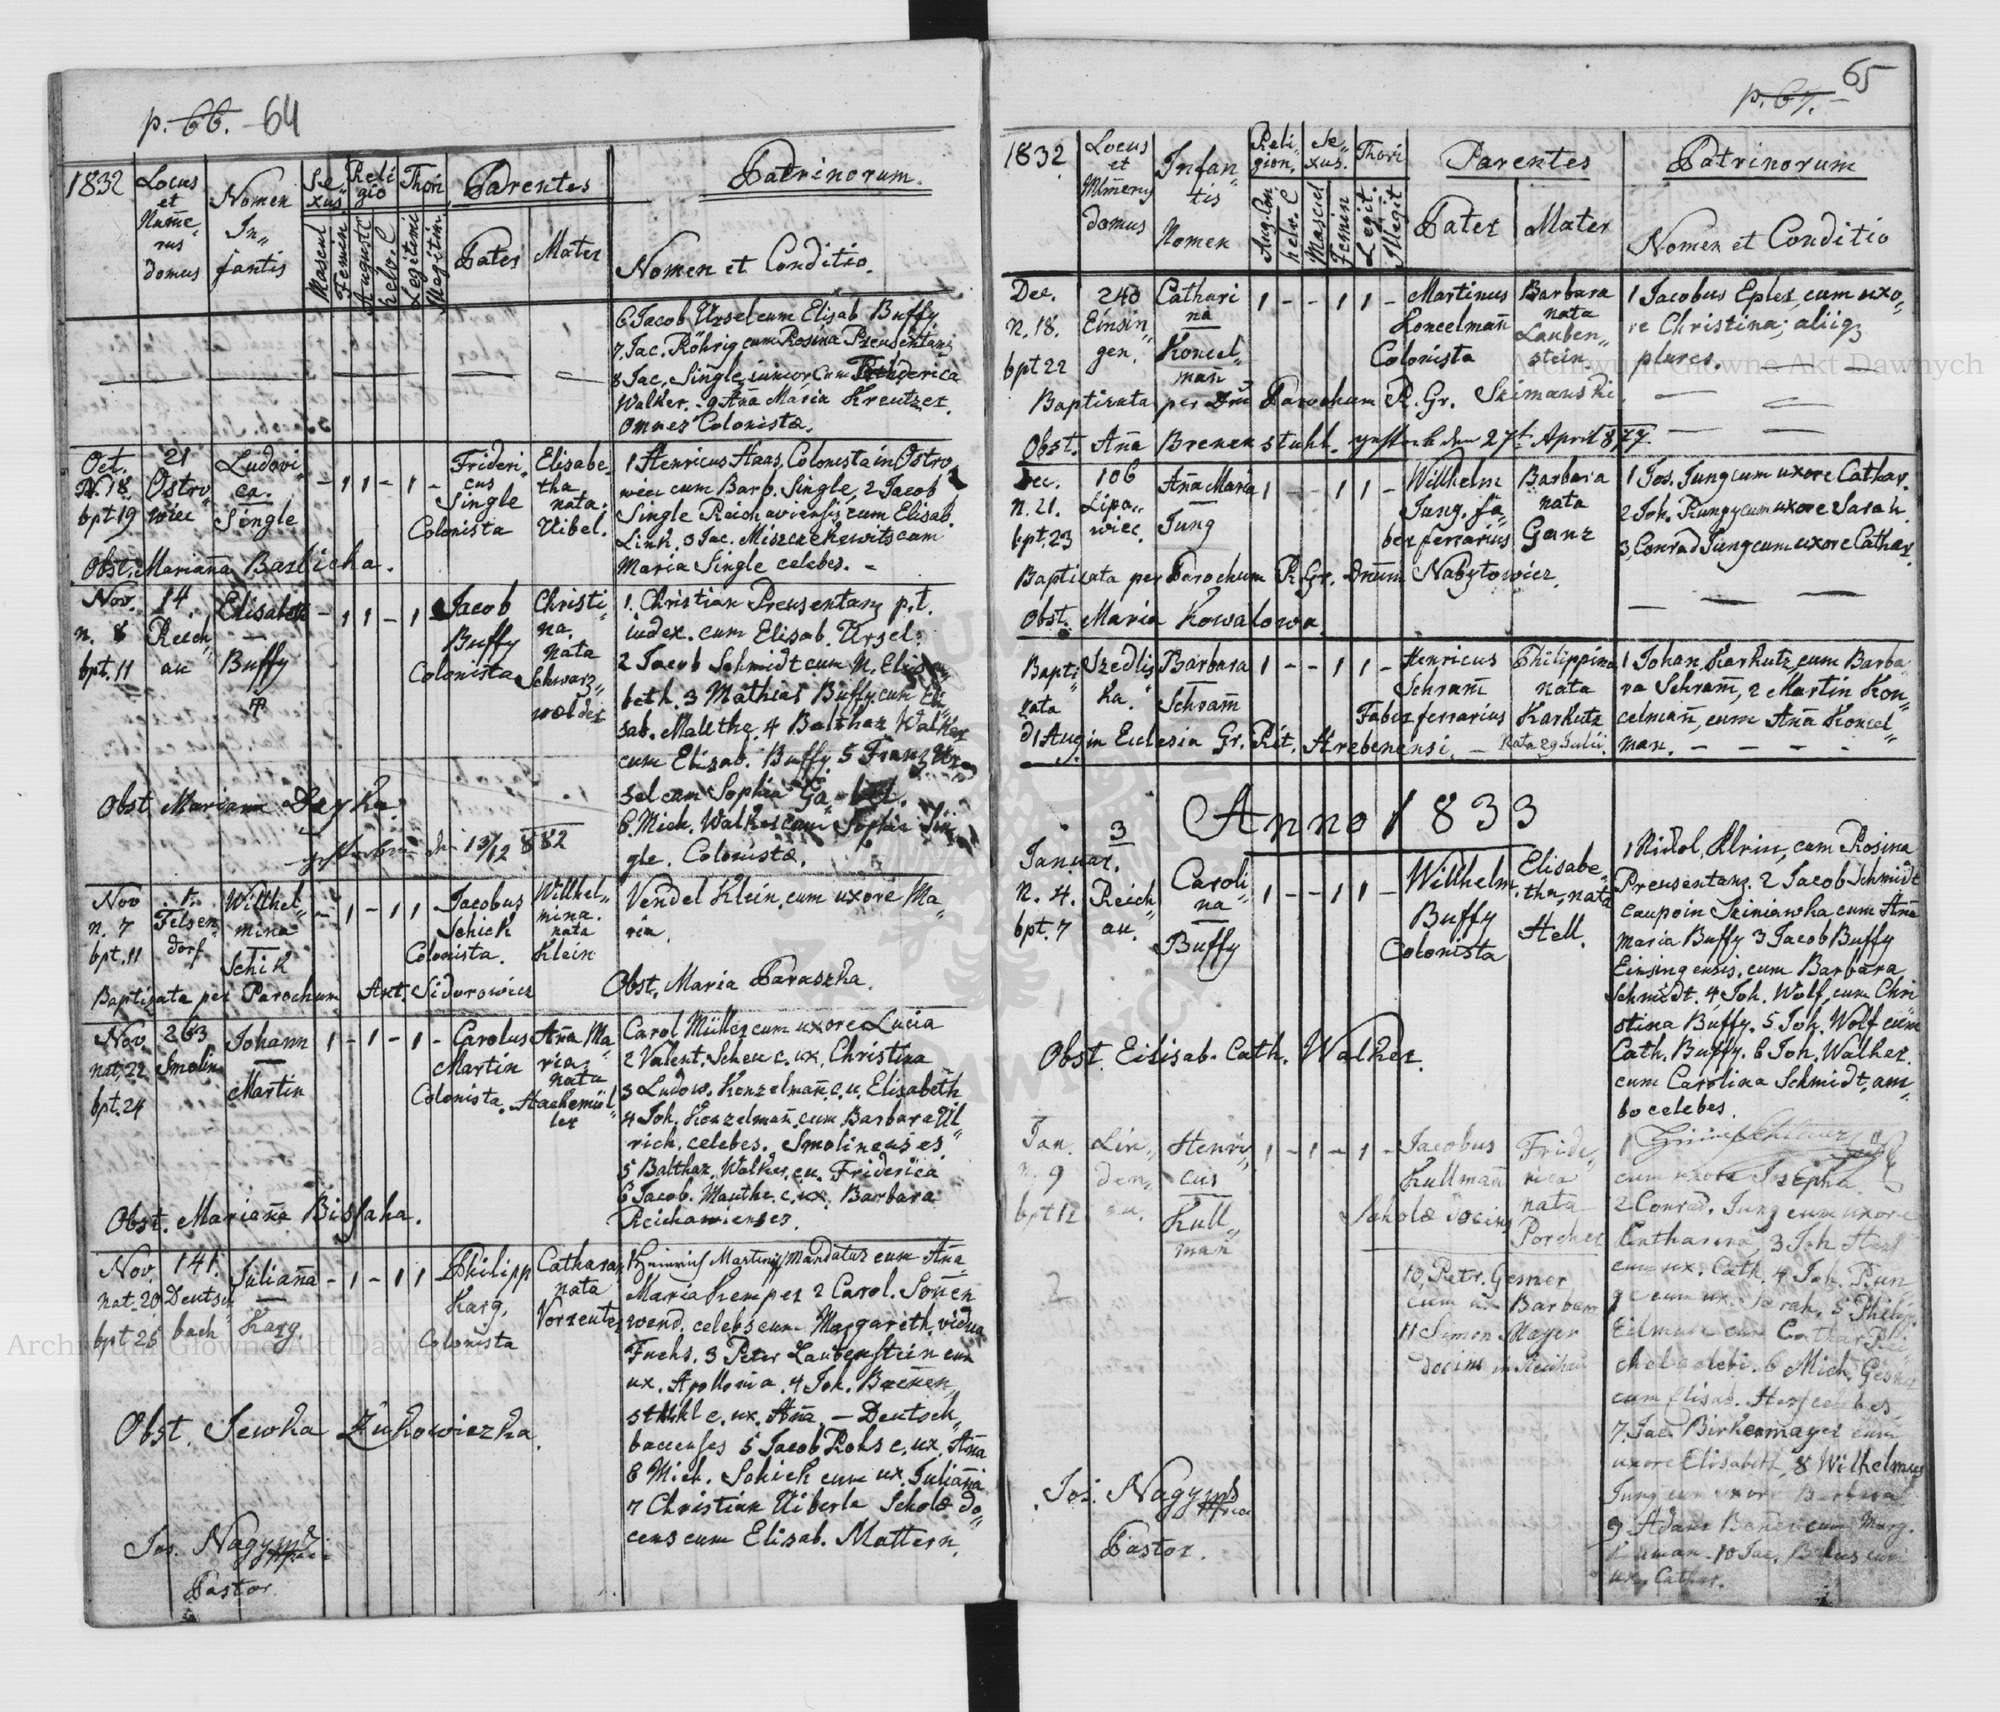 p. 66. 64
1832
Locus et Nume-rus domus
Nomen In-fantis
Se-xus
Reli-gio
Thori
Parentes
Patrinorum.
Mascul
Femin
August C
helv. C
Legitimi
Illegitim
Pater
Mater
Nomen et Conditio.
6 Jacob Ursel cum Elisab Buffy
7. Jac. Röhrig cum Rosina Preusentanz
8 Jac. Single iunior cum Friderica
Walker. 9 Aña Maria Kreutzer.
Omnes Colonistæ.
Oct. N. 18. bpt 19
21 Ostro-wiec
Ludovi-ca. Single
- 1 1 - 1 -
Frideri-cus Single Colonista
Elisabe-tha nata Uibel.
1 Henricus Haas, Colonista in Ostro
wiec cum Barb. Single, 2 Jacob
Single Reichaviensis cum Elisab.
Link. 3 Jac. Miszczehewits cum
Maria Single celebes. -
Obst. Mariaña Barbicha.
Nov. n. 8 bpt. 11
14. Reich-au
Elisabeth Buffy
- 1 1 - 1
Jacob Buffy Colonista
Christi-na. nata Schwarz-wælder
1. Christian Preusentanz p.t.
iudex. cum Elisab. Ursel.
2 Jacob Schmidt cum N. Elisa-
beth. 3 Mathias Buffy cum Eli
sab. Malethe. 4 Balthaz Walker
cum Elisab. Buffy 5 Franz Ur-
sel cum Sophia
6. Mich. Walker cum Sophia Sin
gle. Colonistæ.
Obst Mariana Deyka.
gestorben den 13/12 882
Nov n. 7 bpt. 11
1. Felsen-dorf
Willhel-mina Schik
- 1 - 1 1
Jacobus Schick Colonista.
Willhel-mina. nata Klein
Vendel Klein. cum uxore Ma-
ria.
Baptizata per Parochum Ant. Sidorowicz
Obst. Maria Paraszka.
Nov. nat. 22 bpt. 24
263 Smolin
Johann Martin
1 - 1 - 1 -
Carolus Martin Colonista.
Aña Ma-ria. nata Hachemül-ler
Carol Müller cum uxore Lucia
2 Valent. Scheu c. ux. Christina
3 Ludow. Konzelmañ. c. u. Elisabeth
4 Joh. Konzelmañ. cum Barbara Ul-
rich. celebes. Smolinenses.
5 Balthaz. Walker. c. u. Friderica
6 Jacob. Manthe. c. ux. Barbara
Reichawienses.
Obst. Mariaña Bisjaha.
Nov. nat. 20 bpt 25
141. Deutsch-bach
Juliaña Karg.
- 1 - 1 1 -
Philipp Karg. Colonista
Cathara nata Vorreuter
1 Heinrich Martin Mandatar cum Aña
Maria Kemper 2 Carol. Soñen
wend. celebs cum Margareth. vidua
Fuchs. 3 Peter Laubenstein cum
ux. Apollonia. 4 Joh. Brenen,
stuhl c. ux. Aña. - Deutsch-
bacenses 5 Jacob Rohs c. ux. Aña
6 Mich. Schick cum ux. Juliaña
7 Christian Uiberle Scholæ do-
cens cum Elisab. Mattern.
Obst. Sewka Zukowiczka.
Jos. Nagy
Pastor.
65
p. 67.
1832.
Locus et Numerus domus
Infan-tis Nomen
Reli-gion.
Se-xus.
Thori
Parentes
Patrinorum
Aug. Con
helv. C
Mascul
Femin
Legit.
Illegit
Pater
Mater
Nomen et Conditio
Dec. n. 18. bpt 22
240 Einsin-gen.
Cathari na Koncel-mañ
1 - - 1 1 -
Martinus Koncelmañ Colonista
Barbara nata Lauben-stein
1 Jacobus Epler, cum uxo-
re Christina; aliiq3
plures.
Baptizata per Dnū Parochum R. Gr. Szimanski.
Obst. Aña Brenenstuhl. gestorb den 27t April 877.
Dec. n. 21. bpt. 23
106 Lipo-wiec.
Aña Maria Jung
1 - - 1 1 -
Willhelm Jung. fa-ber ferrarius
Barbara nata Ganz
1 Jos. Jung cum uxore Cathar.
2 Joh. Rungy cum uxore Sarah.
3. Conrad Jung cum uxore Cathar.
Baptizata per Parochum R. Gr. Dnūm Nabytowicz.
Obst. Maria Kowalowa.
Bapti-zata
Szedlis-ka.
Barbara Schram̄
1 - - 1 1 -
Henricus Schram̄ Faber ferrarius
Philippina nata Karkutz
1 Johan. Karkutz, cum Barba
ra Schram̄, 2 Martin Kon-
celmañ, cum Aña Koncel-
man.
d 1 Aug. in Eclesia Gr. Rit. Hrebenensi. - Nata 29 Julii.
Anno 1833
Januar. n. 4. bpt. 7
3 Reich-au.
Caroli-na Buffy
1 - - 1 1 -
Willhelm Buffy Colonista
Elisabe-tha, nata Hell.
1 Nickol. Klein, cum Rosina
Preusentanz. 2 Jacob Schmidt
caupo in Skiniawka cum Aña
Maria Buffy 3 Jacob Buffy
Einsingensis. cum Barbara
Schmidt. 4 Joh. Wolf. cum Chri
stina Buffy. 5. Joh. Wolf cum
Cath. Buffy. 6 Joh. Walker.
cum Carolina Schmidt. am-
bo celebes.
Obst. Elisab. Cath. Walker.
Jan. n. 9 bpt 12
Lin-den-au.
Henri-cus Kull-man
1 - 1 - 1 -
Jacobus Kullmañ Scholæ docens
Fride-rica nata Porcher
cum uxore Josepha
2 Conrad. Jung cum uxore
Catharina, 3 Joh
cum ux. Cath. 4 Joh. Run
ge cum ux. Sarah. 5 Philip.
cum Cathar
celebi. 6 Mich. Gesner
cum Elisab. celebes
7. Jac. Birkenmayer cum
uxore Elisabeth, 8 Wilhelmus
Jung cum uxore Barbara
9 Adam cum Marg.
10 Jac. cum
ux. Cathar.
2
10. Petr. Gesner
cum ux Barbara
11 Simon Mayer
docens in Reichau
Jos. Nagy
Pastor.
Archiwum Główne Akt Dawnych
Archiwum Główne Akt Dawnych